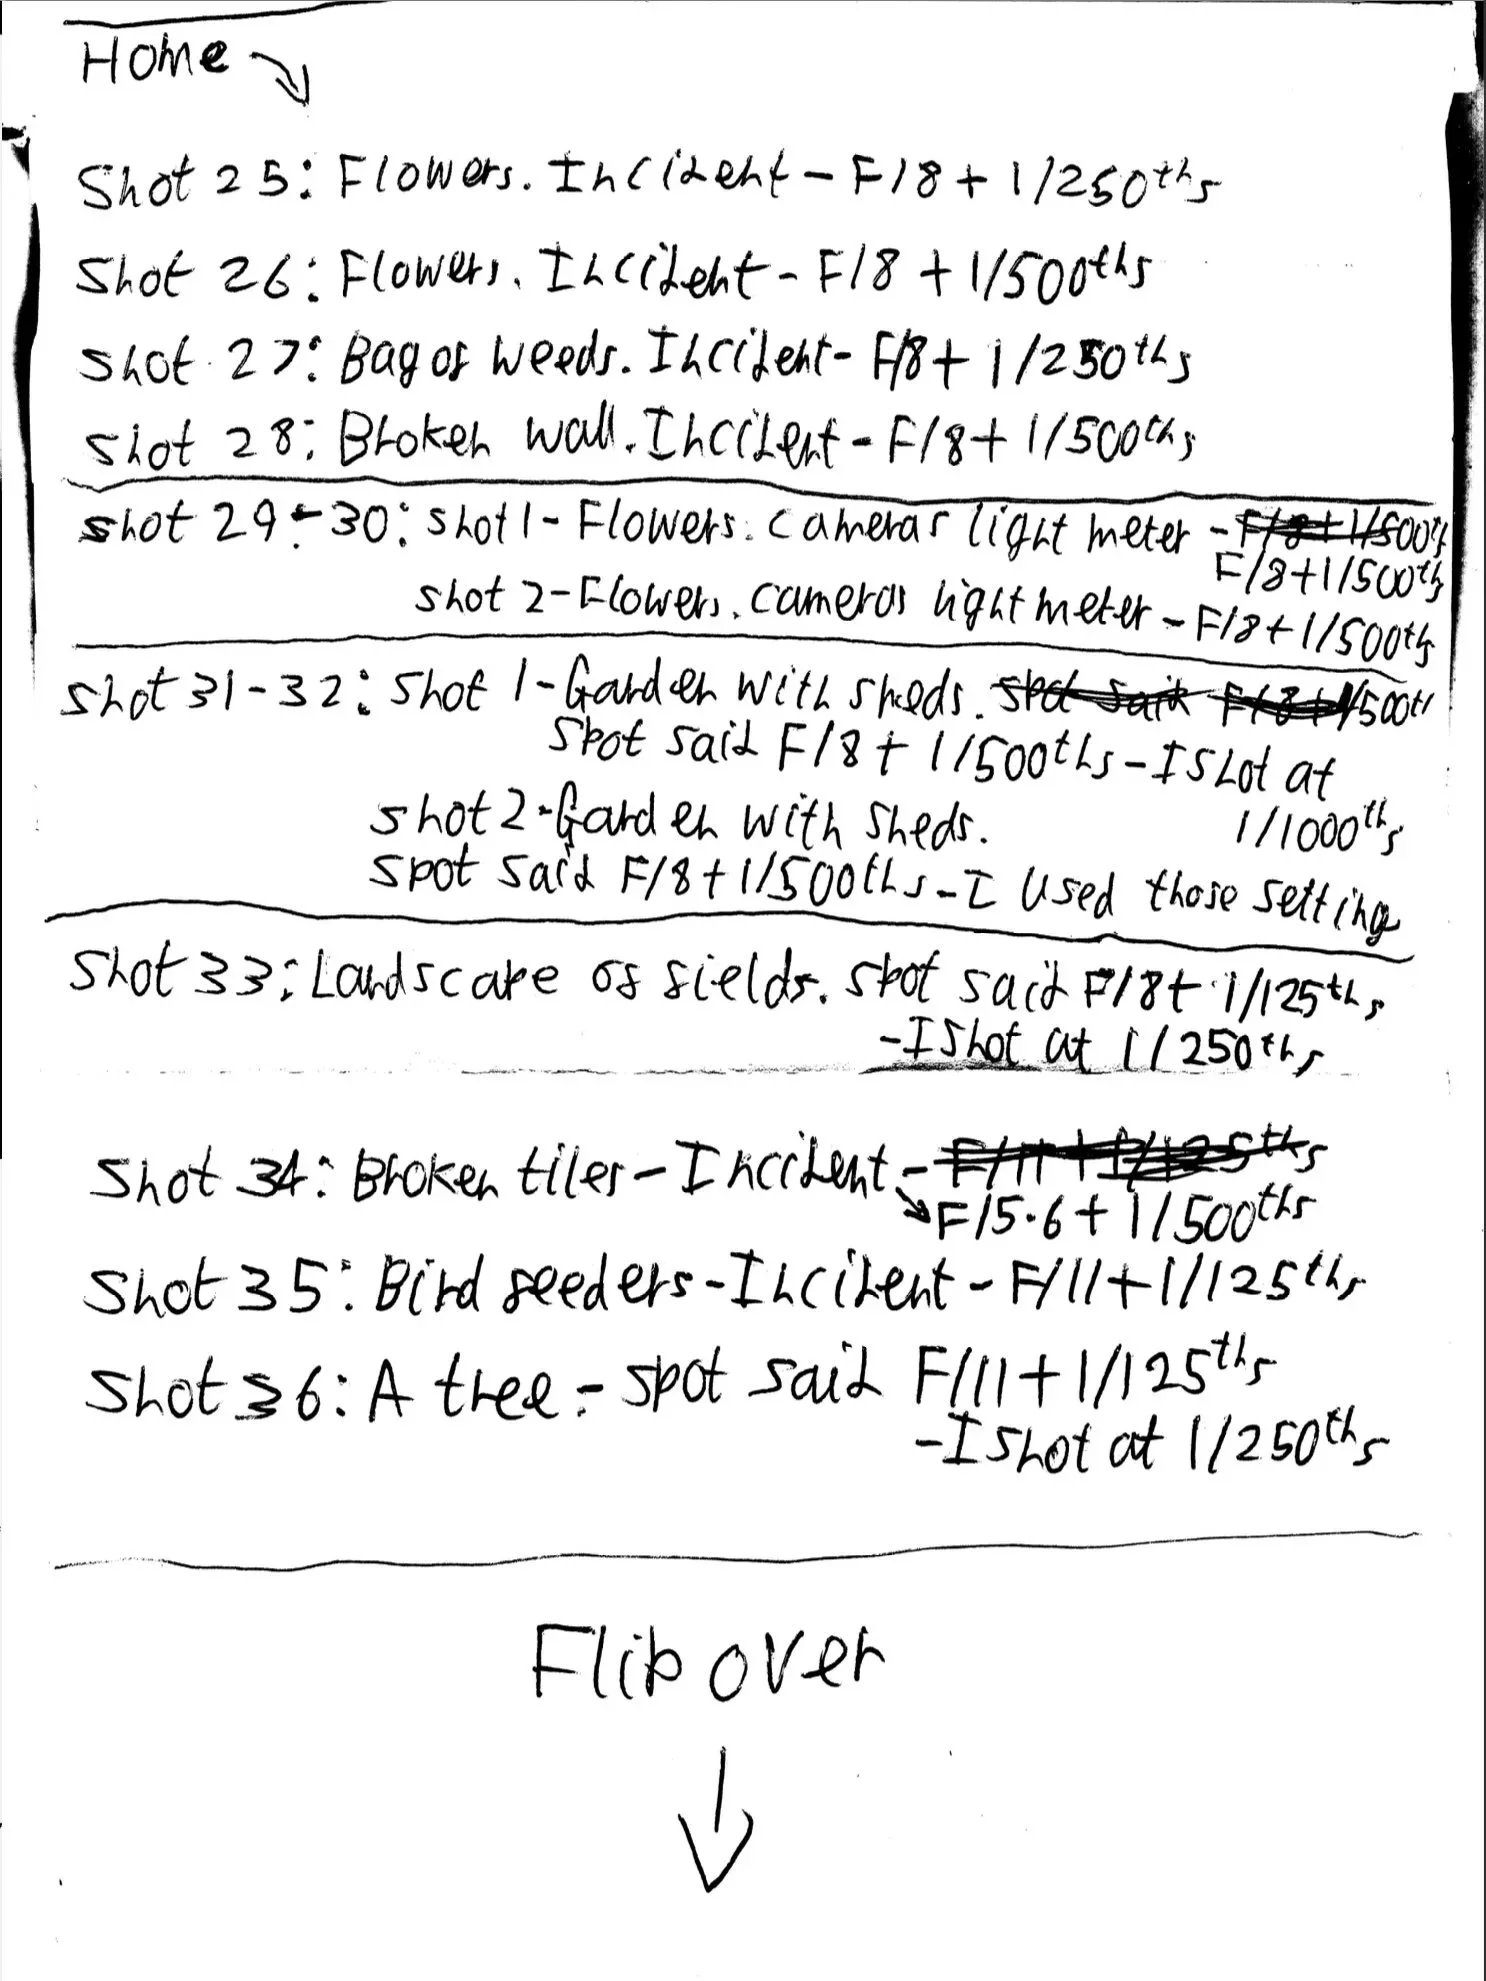 Home
Shot 25: Flowers. Incident - F/8 + 1/250ths
Shot 26: Flowers. Incident - F/8 + 1/500ths
Shot 27: Bag of weeds. Incident - F/8 + 1/250ths
Shot 28: Broken wall. Incident - F/8 + 1/500ths
Shot 29-30: Shot 1 - Flowers. Cameras light meter - F/8 + 1/500ths
F/8 + 1/500ths
Shot 2 - Flowers. Cameras light meter - F/8 + 1/500ths
Shot 31-32: Shot 1 - Garden with sheds. Spot said F/8 + 1/500th
Spot said F/8 + 1/500ths - I shot at
1/1000ths
Shot 2 - Garden with sheds.
Spot said F/8 + 1/500ths - I used those setting
Shot 33: Landscape of fields. Spot said F/8 + 1/125ths
- I shot at 1/250ths
Shot 34: Broken tiles - Incident - F/11 + 1/125ths
F/5.6 + 1/500ths
Shot 35: Bird feeders - Incident - F/11 + 1/125ths
Shot 36: A tree - Spot said F/11 + 1/125ths
- I shot at 1/250ths
Flip over